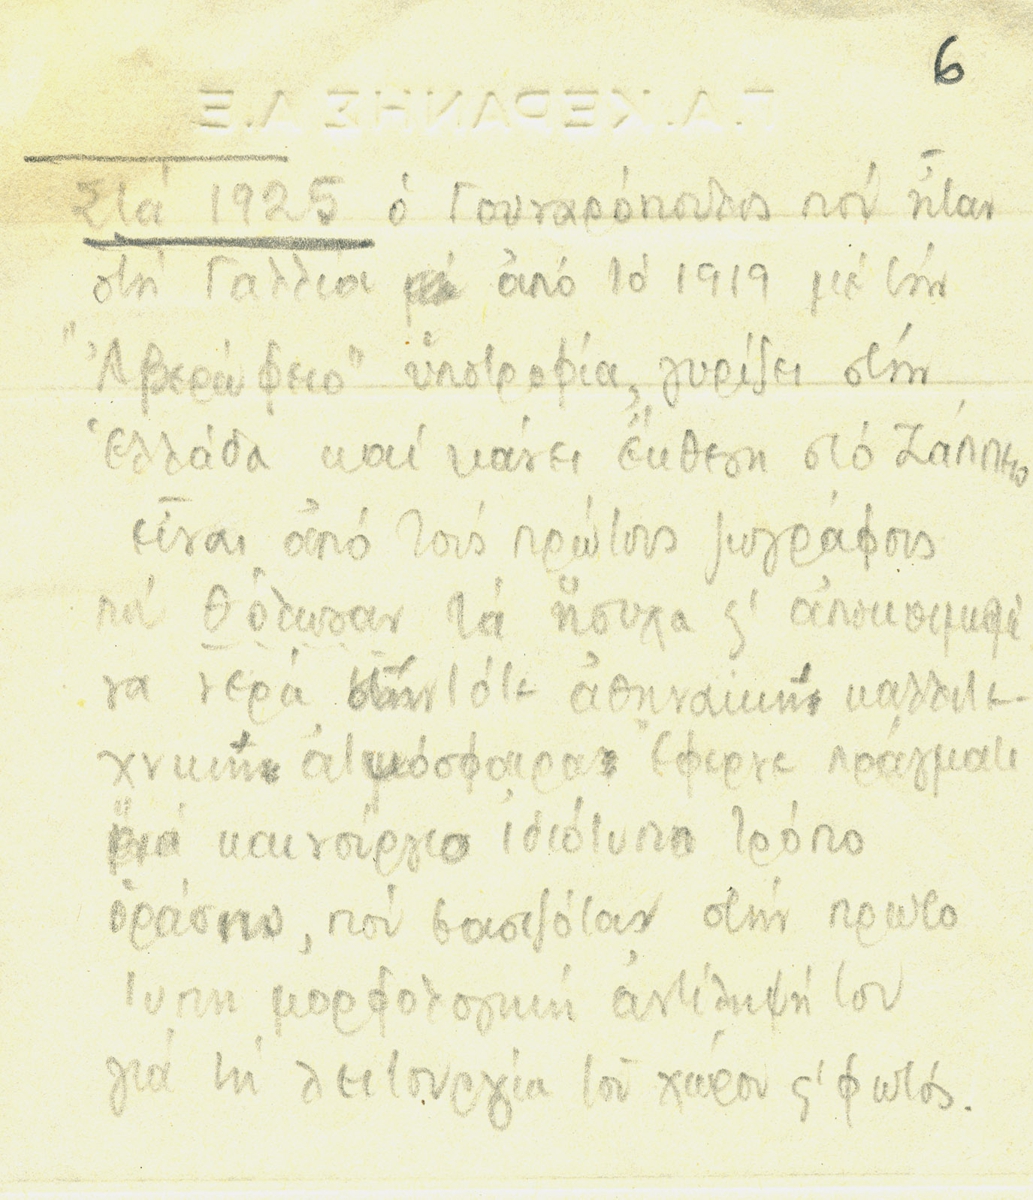 6
Γ.Α. ΚΕΡΑΝΗΣ Α.Ε
Στά 1925 ὁ Γουναρόπουλος πού ἦταν
στή Γαλλία ἀπό τό 1919 μέ τήν
"Ἀβερώφειο" ὑποτροφία, γυρίζει στήν
Ἑλλάδα καί κάνει ἔκθεση στό Ζάππειο
εἶναι ἀπό τούς πρώτους ζωγράφους
πού θόλωσαν τά ἥσυχα ϛ'
να νερά τότε ἀθηναϊκῆς καλλιτε-
χνικῆς ἀτμόσφαιρας Ἔφερνε πράγματι
καινούργιο ἰδιότυπο τρόπο
ὁράσεως, πού βασιζόταν στήν πρωτο
τυπη μορφολογική ἀντίληψή του
γιά τή λειτουργία τοῦ χώρου ϛ' φωτός.